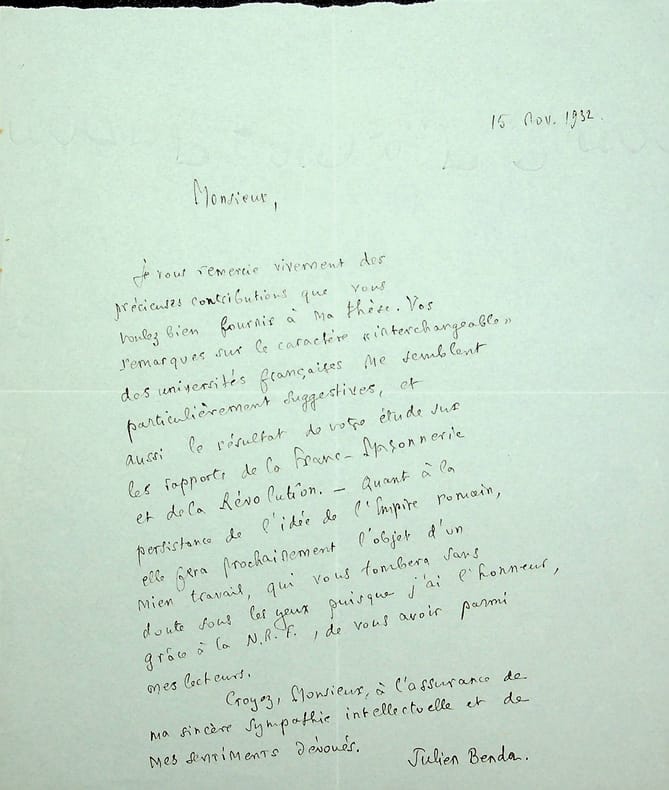 15 Nov. 1932.
Monsieur,
Je vous remercie vivement des
précieuses contributions que vous
voulez bien fournir à ma thèse. Vos
remarques sur le caractère « interchangeable »
des universités françaises me semblent
particulièrement suggestives, et
aussi le résultat de votre étude sur
les rapports de la Franc-Maçonnerie
et de la Révolution. — Quant à la
persistance de l'idée de l'Empire romain,
elle fera prochainement l'objet d'un
mien travail, qui vous tombera sans
doute sous les yeux puisque j'ai l'honneur,
grâce à la N.R.F., de vous avoir parmi
mes lecteurs.
Croyez, Monsieur, à l'assurance de
ma sincère sympathie intellectuelle et de
mes sentiments dévoués.
Julien Benda.